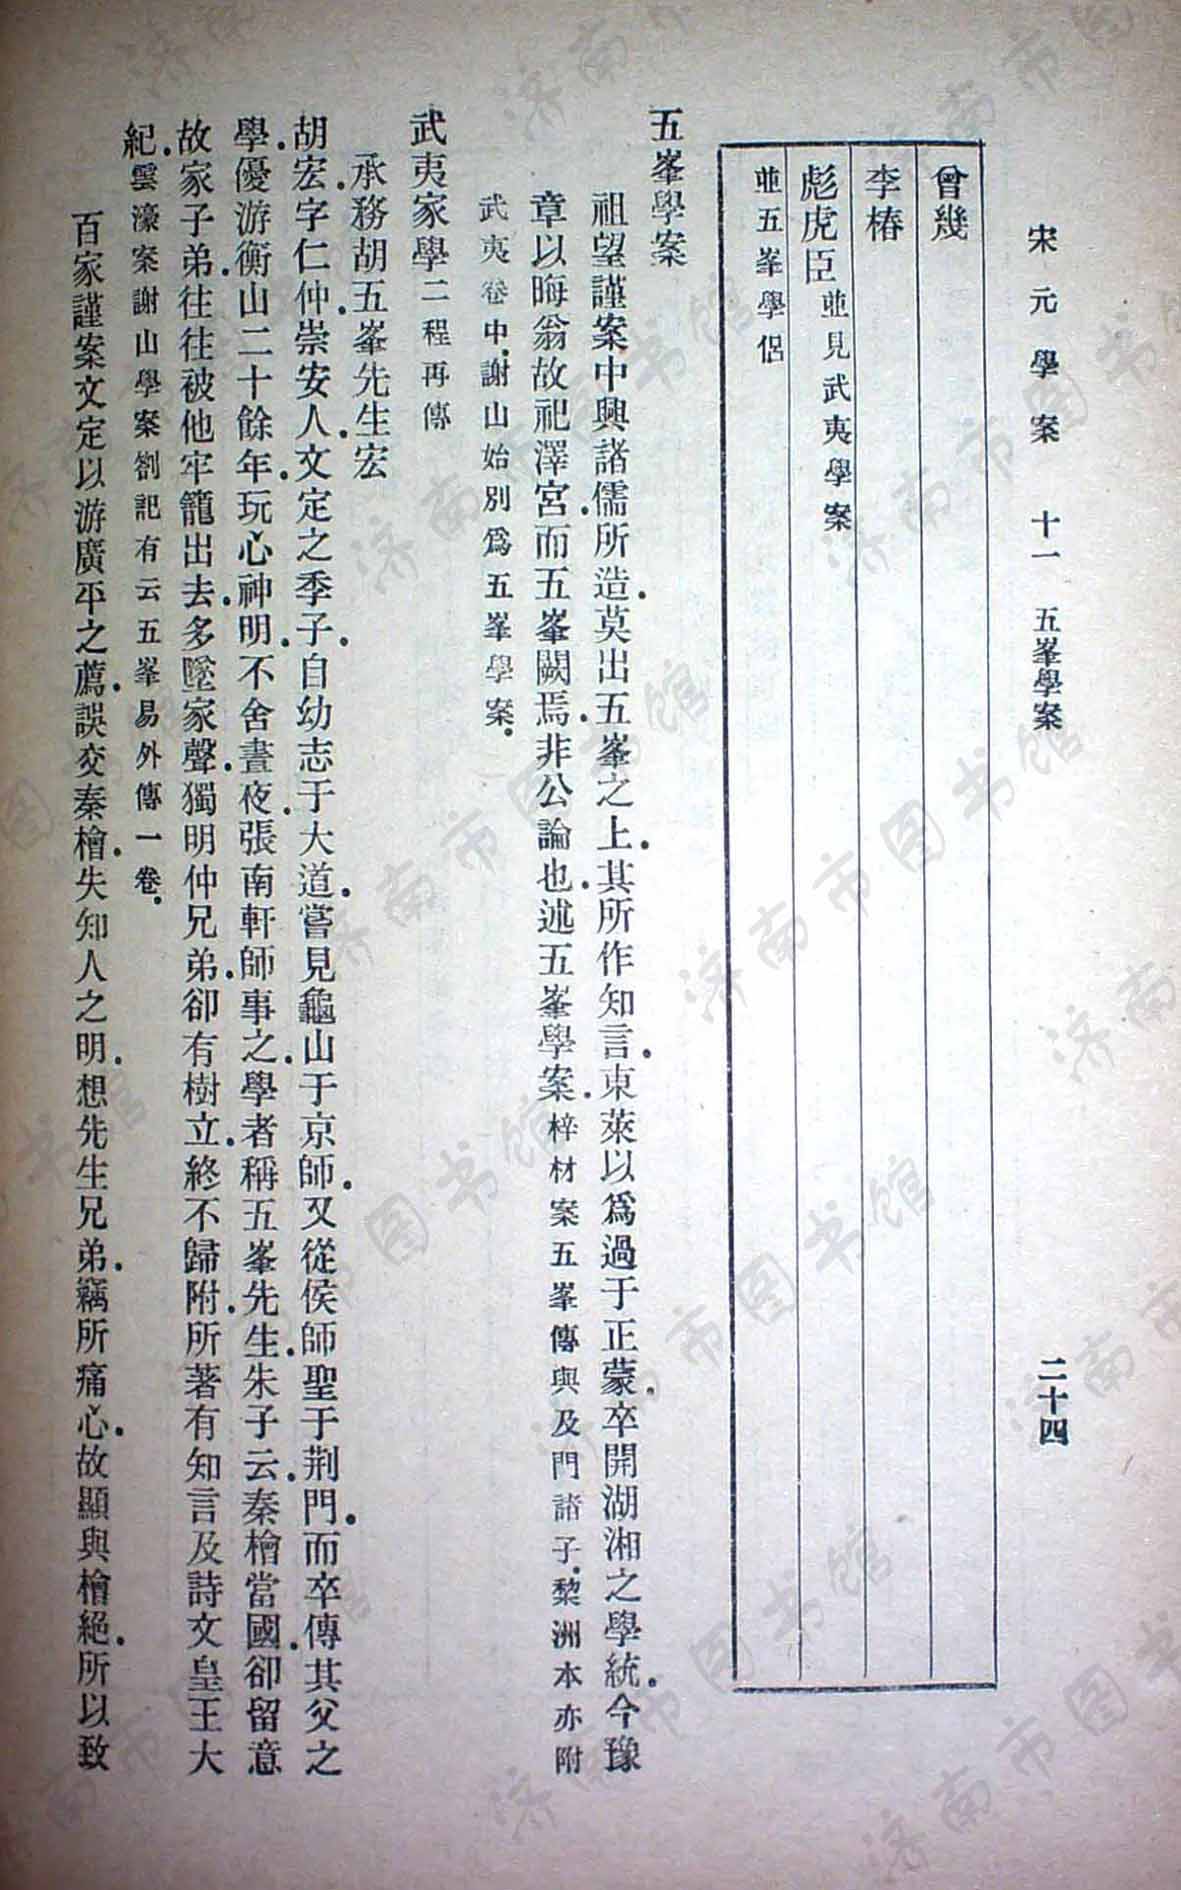 宋元學案　十一　五峯學案　二十四
曾幾
李椿
彪虎臣並見武夷學案
並五峯學侶
五峯學案
祖望謹案中興諸儒所造．莫出五峯之上．其所作知言．東萊以爲過于正蒙．卒開湖湘之學統．今豫
章以晦翁故祀澤宮．而五峯闕焉．非公論也．述五峯學案．梓材案五峯傳與及門諸子．黎洲本亦附
武夷卷中．謝山始別爲五峯學案．
武夷家學二程再傳
承務胡五峯先生宏
胡宏．字仁仲．崇安人．文定之季子．自幼志于大道．嘗見龜山于京師．又從侯師聖于荆門．而卒傳其父之
學．優游衡山二十餘年．玩心神明．不舍晝夜．張南軒師事之．學者稱五峯先生．朱子云．秦檜當國．卻留意
故家子弟．往往被他牢籠出去．多墜家聲．獨明仲兄弟．卻有樹立．終不歸附．所著有知言及詩文皇王大
紀．雲濠案謝山學案劄記有云五峯易外傳一卷．
百家謹案文定以游廣平之薦．誤交秦檜．失知人之明．想先生兄弟．竊所痛心．故顯與檜絕．所以致
济南市图书馆